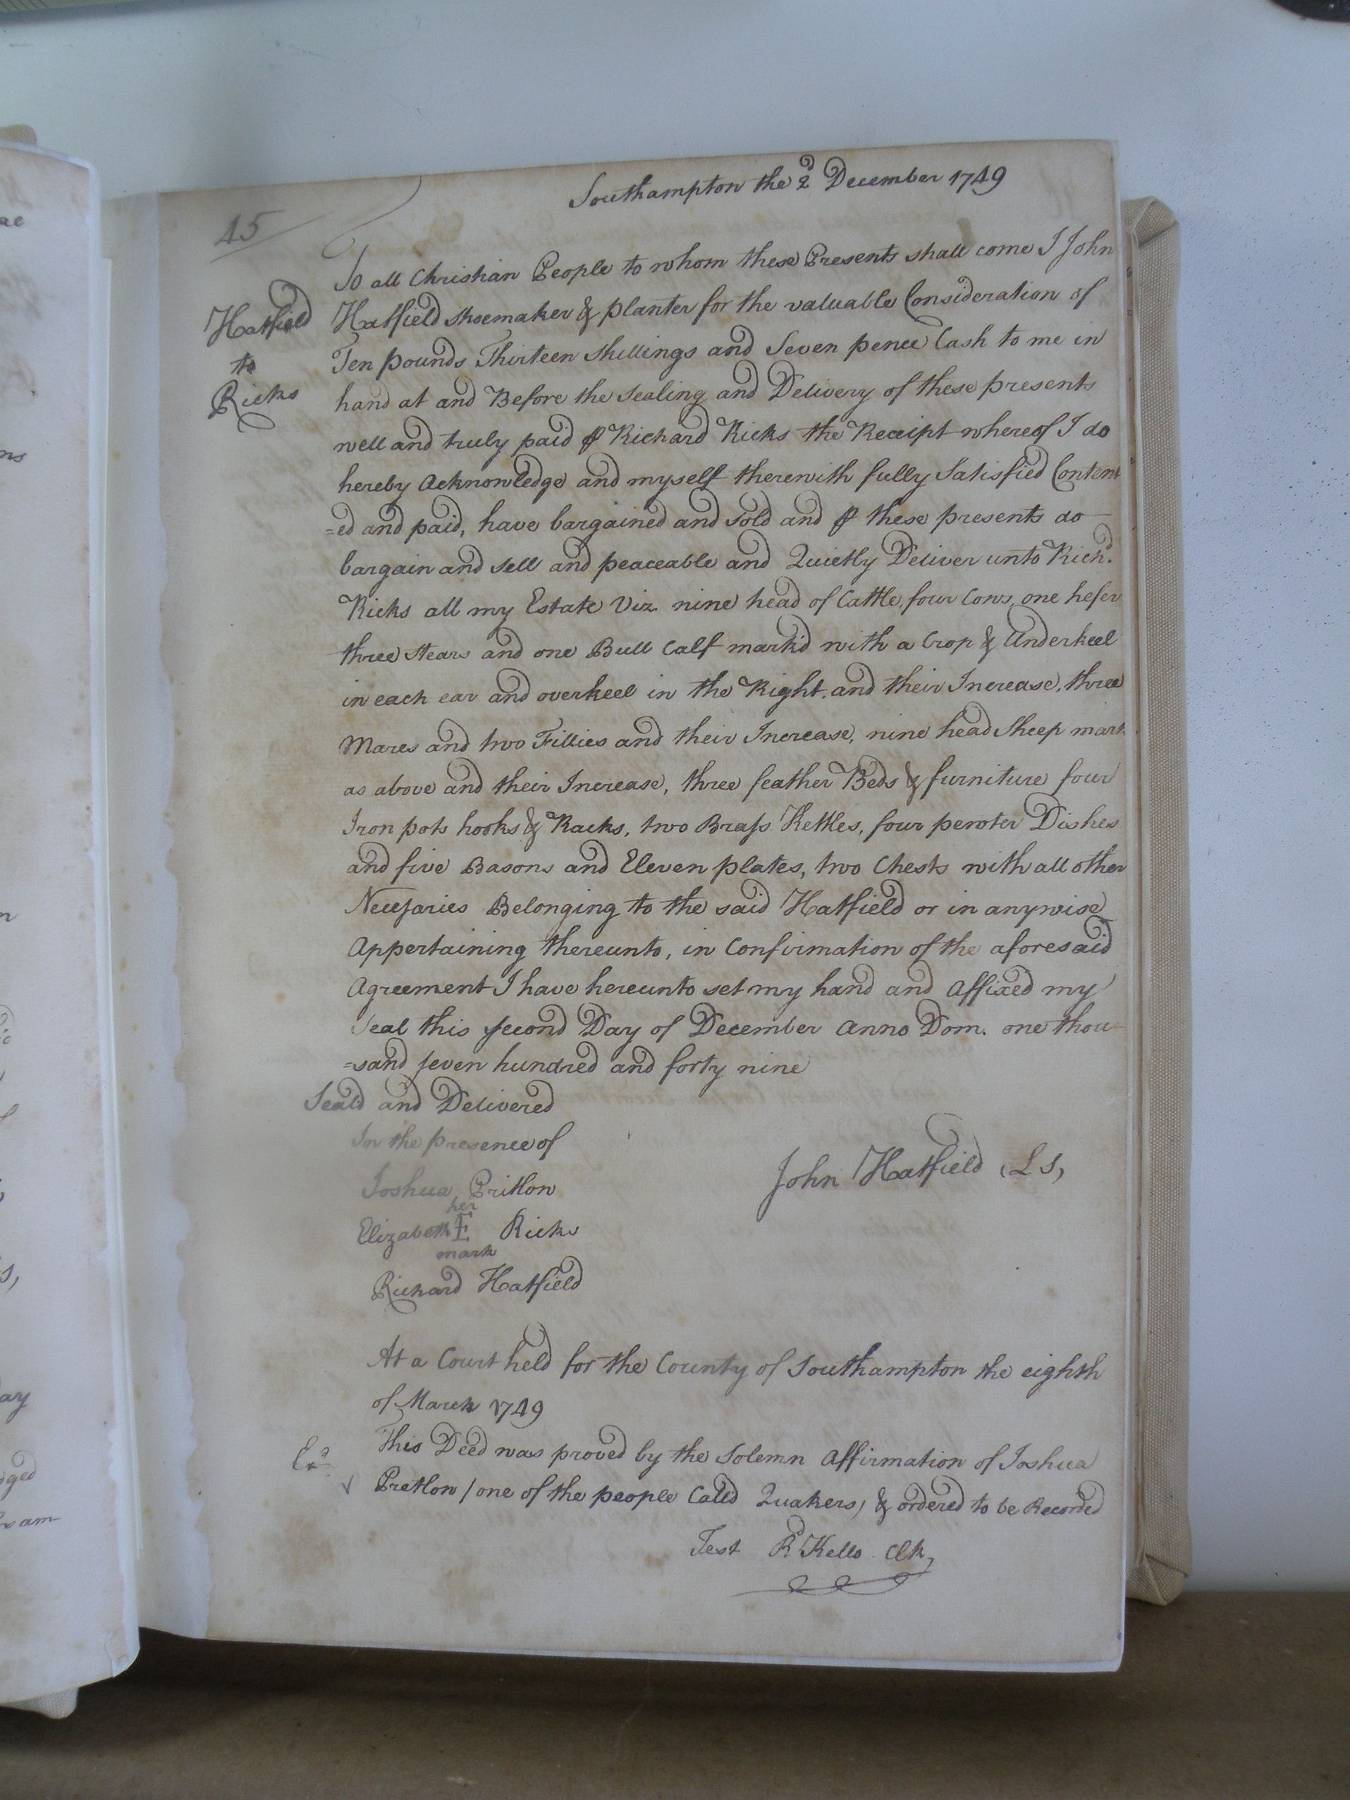 Southampton the 2d December 1749
45
To all Christian People to whom these Presents shall come I John
Hatfield shoemaker & planter for the valuable Consideration of
Ten pounds Thirteen Shillings and Seven pence Cash to me in
hand at and Before the sealing and Delivery of these presents
well and truly paid ⅌ Richard Ricks the Receipt whereof I do
hereby Acknowledge and myself therewith fully Satisfied Content
=ed and paid, have bargained and sold and ⅌ these presents do
bargain and sell and peaceable and Quietly Deliver unto Richd.
Ricks all my Estate Viz. nine head of Cattle, four Cows, one hefer
three stears and one Bull Calf mark'd with a Crop & Underkeel
in each ear and overkeel in the Right, and their Increase, three
Mares and two Fillies and their Increase, nine head Sheep mark
as above and their Increase, three feather Beds & furniture four
Iron pots hooks & Racks, two Brass Kettles, four pewter Dishes
and five Basons and Eleven plates, two Chests with all other
Necessaries Belonging to the said Hatfield or in anywise
Appertaining thereunto, in Confirmation of the aforesaid
Agreement I have hereunto set my hand and Affixed my
Seal this second Day of December Anno Dom. one thou
=sand seven hundred and forty nine
Hatfield
to
Ricks
Seal'd and Delivered
In the presence of
Joshua Pritlon
her
Elizabeth E Ricks
mark
Richard Hatfield
John Hatfield (LS)
At a Court held for the County of Southampton the eighth
of March 1749
This Deed was proved by the Solemn Affirmation of Joshua
Pretlon / one of the people Call'd Quakers / & ordered to be Recorded
Exd.
Test R Kello Clk,
ns
n
ay
dged
am